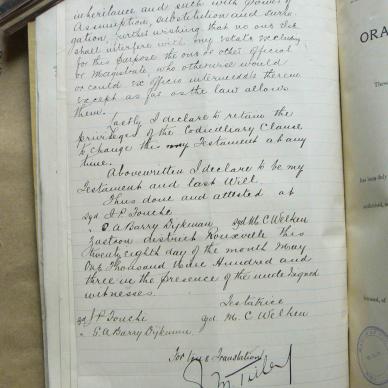 inheritance and such with power of
Assumption, substitution and surro-
gation, further wishing that no one else
shall interfere with my estate excluding
for this purpose the one or other Official
or Magistrate who otherwise would
or could ex officio intermeddle therein
except as far as the law allows
them.
Lastly I declare to retain the
privileges of the Codiciliary Clause
to change this my Testament at any
time.
Abovewritten I declare to be my
Testament and last Will.
Thus done and attested at
sgd J P Fouche
" G A Barry Dykman sgd M. C Welken
Zastron district Rouxville this
twenty eighth day of the month May
One Thousand Nine Hundred and
three in the presence of the undersigned
witnesses.
Testatrice
sgd J P Fouche sgd M. C Welken
" G. A Barry Dykman
for true Translation
ORA